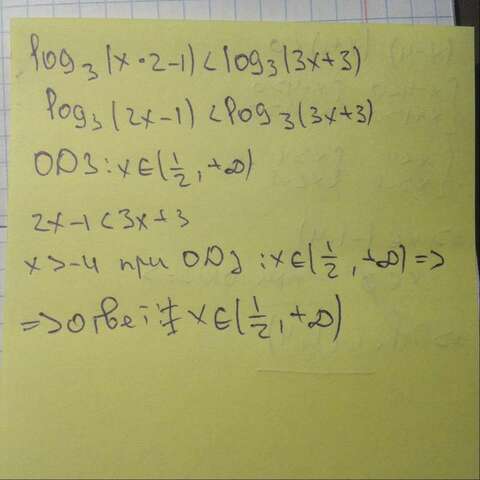 log₃(x·2-1)<log₃(3x+3)
log₃(2x-1)<log₃(3x+3)
ОДЗ:x∈(1/2,+∞)
2x-1<3x+3
x>-4 при ОДЗ:x∈(1/2,+∞)=>
=>Ответ: x∈(1/2,+∞)